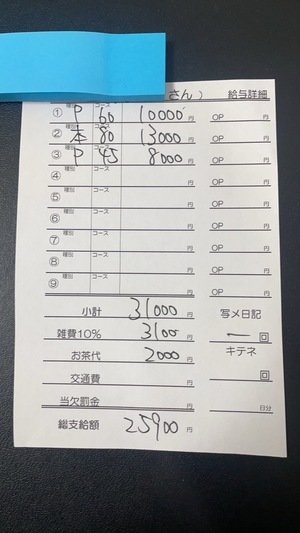 さん） 給与詳細
① 種別 P コース 60 10000円 OP 円
② 種別 本 コース 80 13000円 OP 円
③ 種別 P コース 45 8000円 OP 円
④ 種別 コース 円 OP 円
⑤ 種別 コース 円 OP 円
⑥ 種別 コース 円 OP 円
⑦ 種別 コース 円 OP 円
⑧ 種別 コース 円 OP 円
⑨ 種別 コース 円 OP 円
小計 31000円 写メ日記
雑費10% 3100円 ー 回
お茶代 2000円 キテネ
交通費 円 回
当欠罰金 円 日分
総支給額 25900円